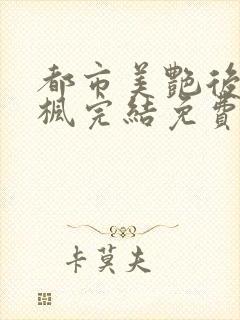 都市美艷後
楓完結免費
卡莫夫